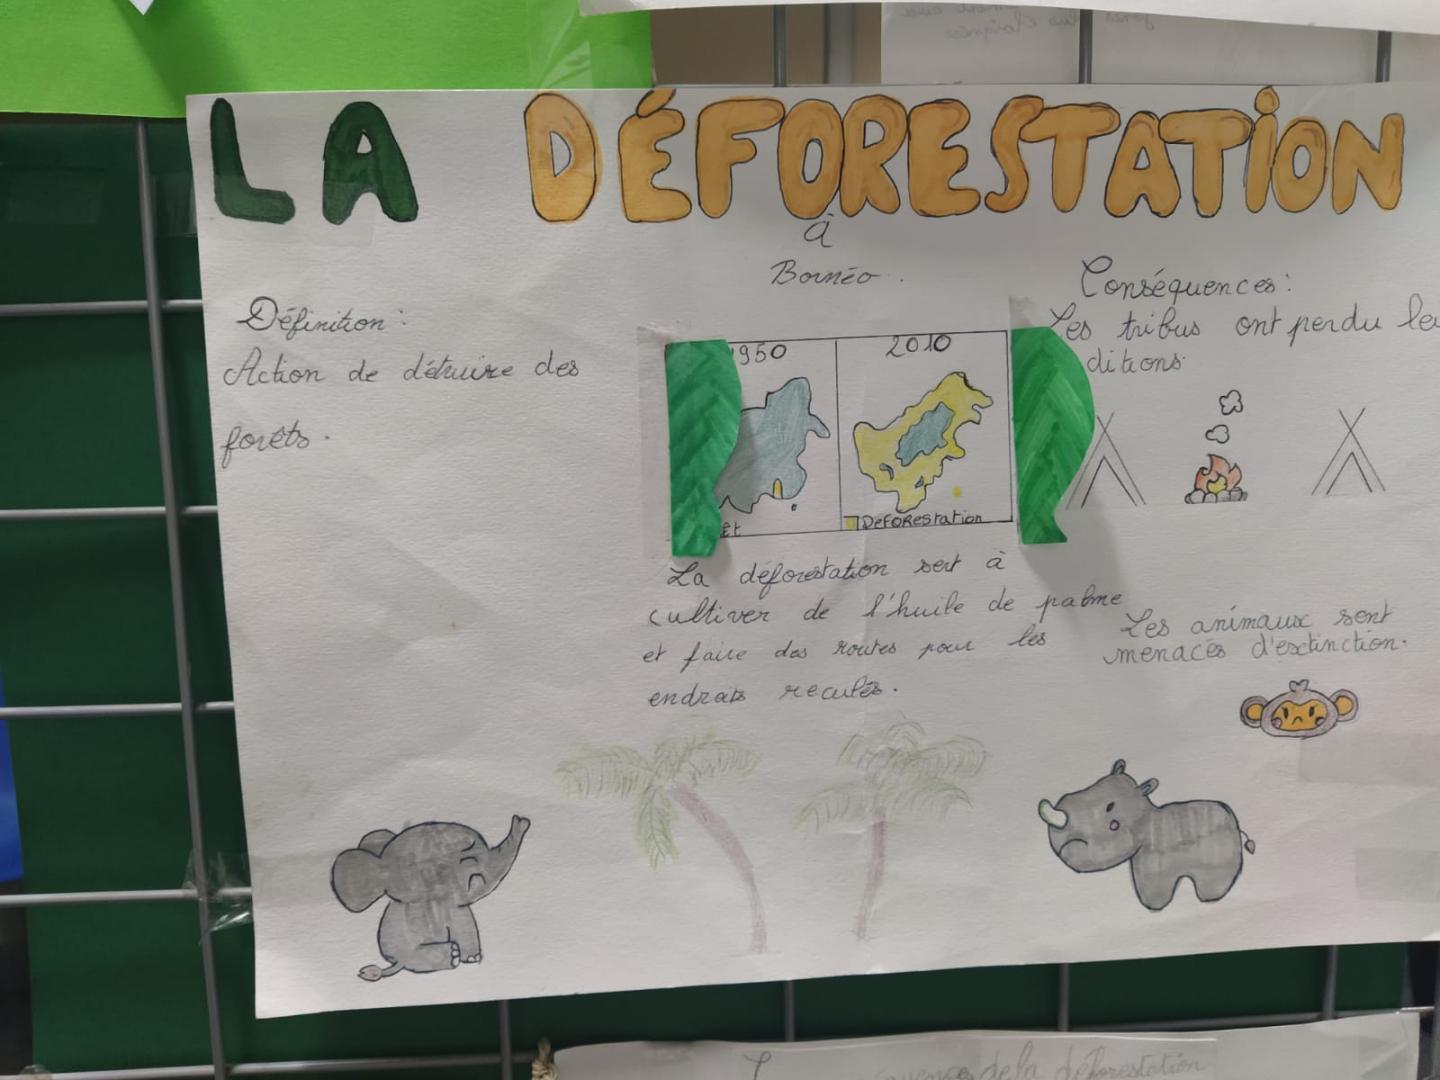 LA DÉFORESTATION
à
Bornéo.
Définition:
Action de détruire des
forêts.
1950
2010
êt
DéFOREStation
La déforestation sert à
cultiver de l'huile de palme
et faire des routes pour les
endrais reculés.
Conséquences:
Les tribus ont perdu leu
ditions.
Les animaux sont
menacés d'extinction.
de la déforestation